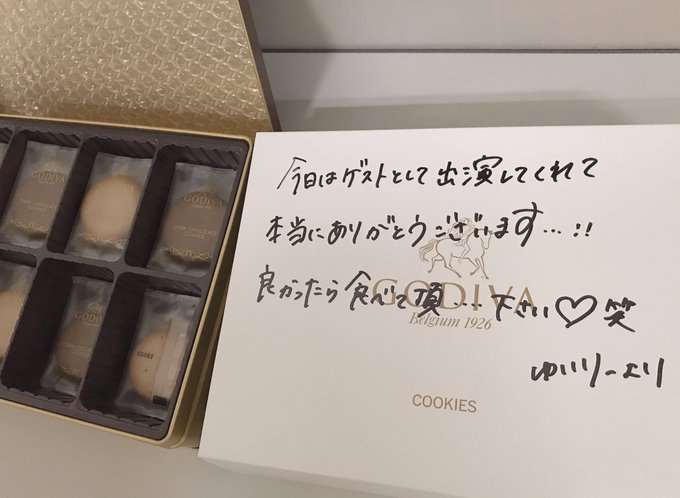 今日はゲストとして出演してくれて
本当にありがとうございます…!!
良かったら食べて頂…下さい♡笑
ゆいりーより
GODIVA
Belgium 1926
COOKIES
GODIVA
DARK CHOCOLATE
COOKIES
GODIVA
DARK CHOCOLATE
COOKIES
GODIVA